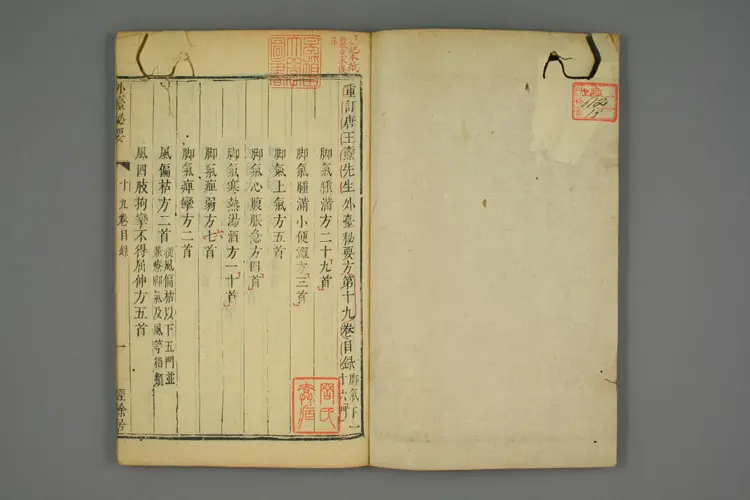 重訂唐王燾先生外臺秘要方第十九卷目錄 脚氣下一十六門
脚氣腫滿方二十九首
脚氣腫滿小便澀方三首
脚氣上氣方五首
脚氣心腹脹急方四首
脚氣寒熱湯酒方一十首
脚氣痺弱方七首
六
脚氣痺攣方二首
風偏枯方二首 從風偏枯以下五門並
並療脚氣及風等相類
風四肢拘攣不得屈伸方五首
外臺秘要
十九卷目錄
一
經餘居